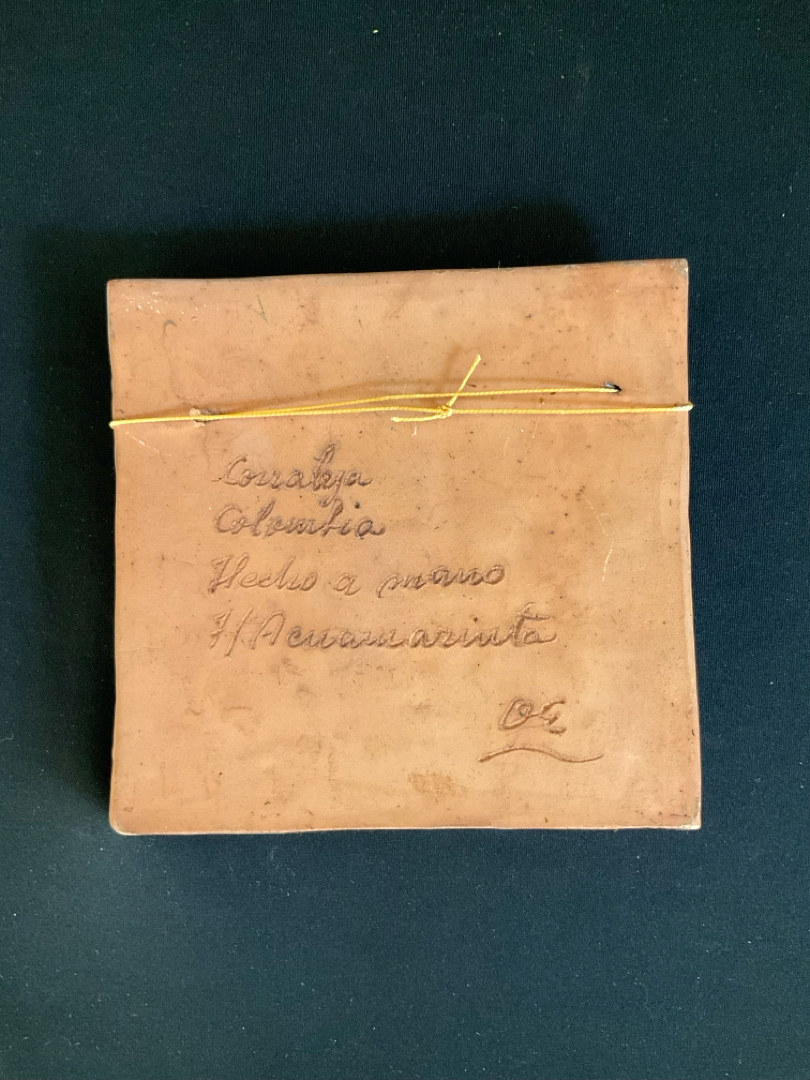 Corraleja
Colombia
Hecho a mano
F/Acuamarinta
OE